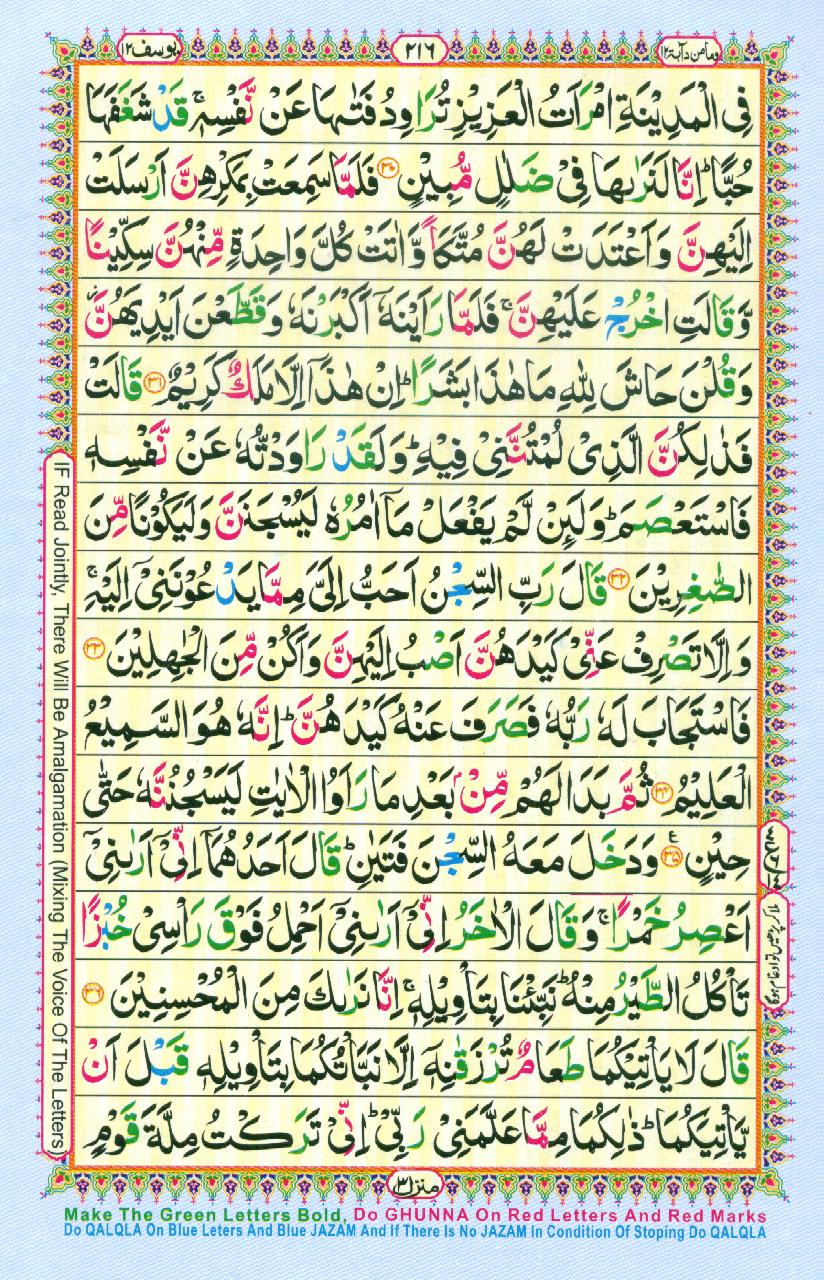 وما من دآبة ١٢
٢١٦
يوسف ١٢
فِى الْمَدِيْنَةِ امْرَاَتُ الْعَزِيْزِ تُرَاوِدُ فَتٰىهَا عَنْ نَّفْسِهٖ ۚ قَدْ شَغَفَهَا
حُبًّا ؕ اِنَّا لَنَرٰىهَا فِىْ ضَلٰلٍ مُّبِيْنٍ ﴿۳۰﴾ فَلَمَّا سَمِعَتْ بِمَكْرِهِنَّ اَرْسَلَتْ
اِلَيْهِنَّ وَاَعْتَدَتْ لَهُنَّ مُتَّكَاً وَّاٰتَتْ كُلَّ وَاحِدَةٍ مِّنْهُنَّ سِكِّيْنًا
وَّقَالَتِ اخْرُجْ عَلَيْهِنَّ ۚ فَلَمَّا رَاَيْنَهٗۤ اَكْبَرْنَهٗ وَقَطَّعْنَ اَيْدِيَهُنَّ
وَقُلْنَ حَاشَ لِلّٰهِ مَا هٰذَا بَشَرًا ؕ اِنْ هٰذَاۤ اِلَّا مَلَكٌ كَرِيْمٌ ﴿۳۱﴾ قَالَتْ
فَذٰلِكُنَّ الَّذِىْ لُمْتُنَّنِىْ فِيْهِ ؕ وَلَقَدْ رَاوَدْتُّهٗ عَنْ نَّفْسِهٖ
فَاسْتَعْصَمَ ؕ وَلَئِنْ لَّمْ يَفْعَلْ مَاۤ اٰمُرُهٗ لَيُسْجَنَنَّ وَلَيَكُوْنًا مِّنَ
الصّٰغِرِيْنَ ﴿۳۲﴾ قَالَ رَبِّ السِّجْنُ اَحَبُّ اِلَىَّ مِمَّا يَدْعُوْنَنِىْۤ اِلَيْهِ ۚ
وَاِلَّا تَصْرِفْ عَنِّىْ كَيْدَهُنَّ اَصْبُ اِلَيْهِنَّ وَاَكُنْ مِّنَ الْجٰهِلِيْنَ ﴿۳۳﴾
فَاسْتَجَابَ لَهٗ رَبُّهٗ فَصَرَفَ عَنْهُ كَيْدَهُنَّ ؕ اِنَّهٗ هُوَ السَّمِيْعُ
الْعَلِيْمُ ﴿۳۴﴾ ثُمَّ بَدَا لَهُمْ مِّنْۢ بَعْدِ مَا رَاَوُا الْاٰيٰتِ لَيَسْجُنُنَّهٗ حَتّٰى
حِيْنٍ ﴿۳۵﴾ ع وَدَخَلَ مَعَهُ السِّجْنَ فَتَيٰنِ ؕ قَالَ اَحَدُهُمَاۤ اِنِّىْۤ اَرٰىنِىْۤ
اَعْصِرُ خَمْرًا ۚ وَقَالَ الْاٰخَرُ اِنِّىْۤ اَرٰىنِىْۤ اَحْمِلُ فَوْقَ رَاْسِىْ خُبْزًا
تَاْكُلُ الطَّيْرُ مِنْهُ ؕ نَبِّئْنَا بِتَاْوِيْلِهٖ ۚ اِنَّا نَرٰىكَ مِنَ الْمُحْسِنِيْنَ ﴿۳۶﴾
قَالَ لَا يَاْتِيْكُمَا طَعَامٌ تُرْزَقٰنِهٖۤ اِلَّا نَبَّاْتُكُمَا بِتَاْوِيْلِهٖ قَبْلَ اَنْ
يَّاْتِيَكُمَا ؕ ذٰلِكُمَا مِمَّا عَلَّمَنِىْ رَبِّىْ ؕ اِنِّىْ تَرَكْتُ مِلَّةَ قَوْمٍ
منزل ٣
IF Read Jointly, There Will Be Amalgamation (Mixing The Voice Of The Letters)
Make The Green Letters Bold, Do GHUNNA On Red Letters And Red Marks
Do QALQLA On Blue Leters And Blue JAZAM And If There Is No JAZAM In Condition Of Stoping Do QALQLA